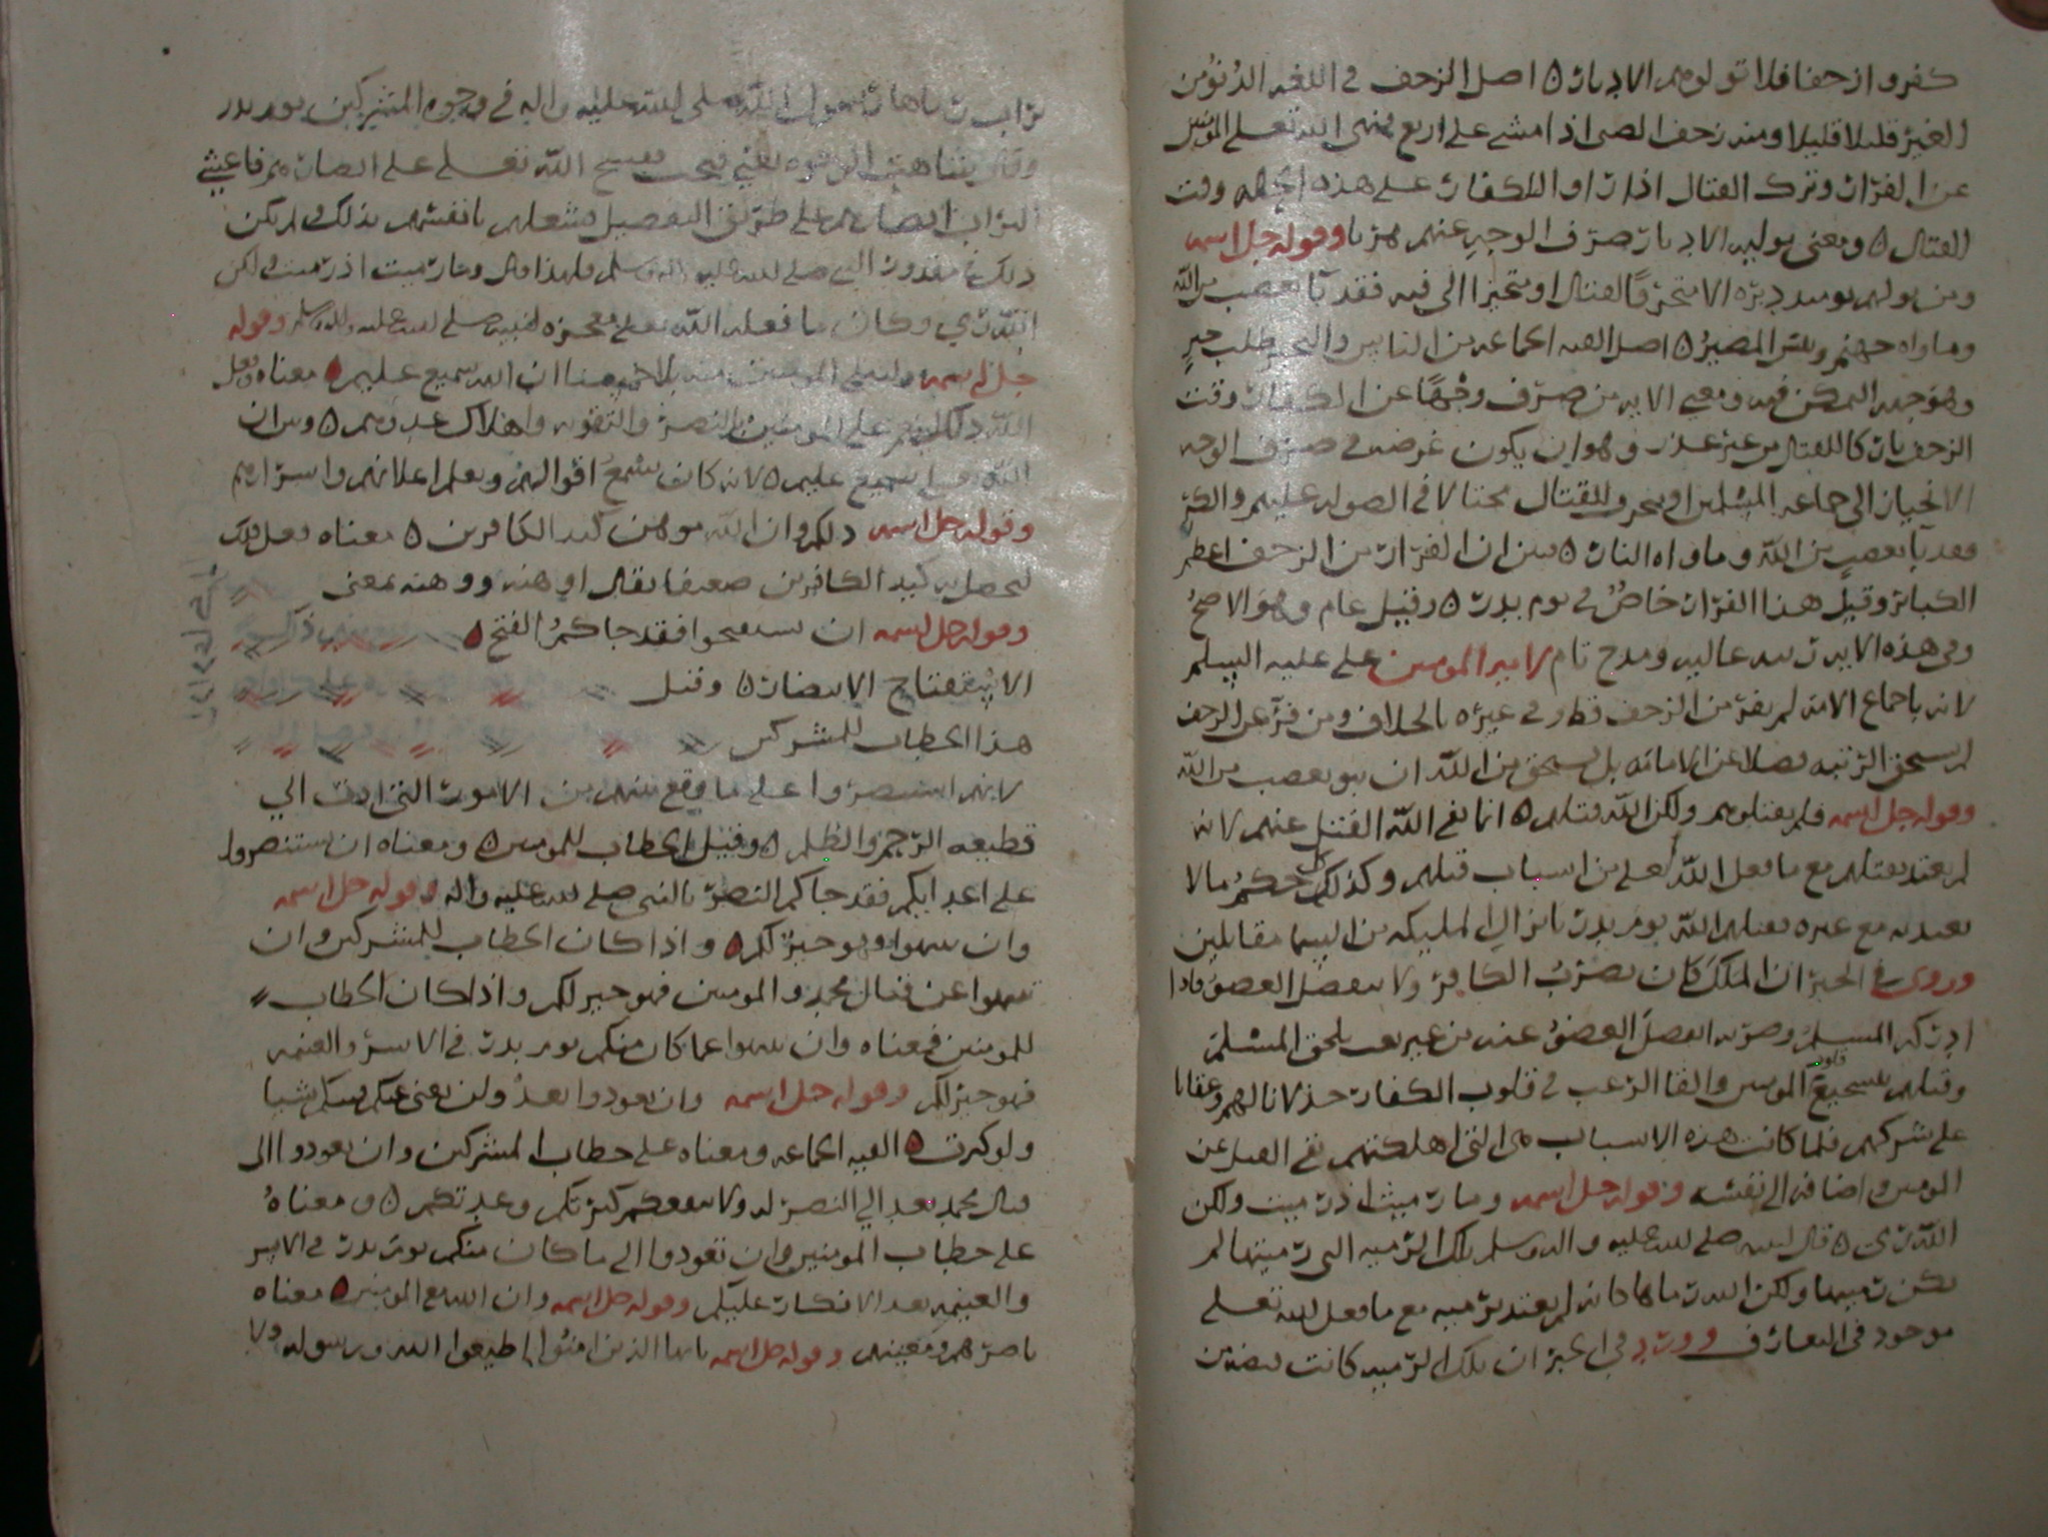 كفروا زحفا فلا تولوهم الادبار ه اصل الزحف في اللغه الدنو من
الغير قليلا قليلا ومنه زحف الصبي اذا مشى على اربع فنهى الله تعلى المومنين
عن الفرار وترك القتال اذا راو الكفار على هذه الجمله وقت
القتال ه ومعنى توليه الادبار صرف الوجه عنهم هربا وقوله جل اسمه
ومن يولهم يومىد دبره الا متحرفا لقتال او متحيزا الى فيه فقد با بغضب من الله
وماواه جهنم وبيس المصير ه اصل الفيه الجماعه من الناس والتحيز طلب حيز
وهو جهه التمكن فيه ومعنى الايه من صرف وجهه عن الكفار وقت
الزحف تاركا للقتال من غير عذر وهو ان يكون غرضه في صرف الوجه
الانحياز الى جماعه المسلمين او يتحرف للقتال محتالا في الصوله عليهم والكر
فقد با بغضب من الله وماواه النار ه فبين ان الفرار من الزحف اعظم
الكبائر وقيل هذا الفرار خاص في يوم بدر ه وقيل عام وهو الاصح
وفي هذه الايه رتبه عاليه ومدح تام لامير المومنين على عليه السلم
لانه باجماع الامه لم يفر من الزحف قط وفي غيره بالخلاف ومن فر عن الزحف
لم يستحق الرتبه فضلا عن الامامه بل يستحق من الله ان يبو بغضب من الله
وقوله جل اسمه فلم تقتلوهم ولكن الله قتلهم ه انما نفى الله القتل عنهم لانه
لم يعتد بقتلهم مع ما فعل الله تعلى من اسباب قتلهم وكذلك كل حكم ما لا
يعتد به مع غيره فقتلهم الله يوم بدر بانزال المليكه من السما مقاتلين
وروى في الخبر ان الملك كان يضرب الكافر ولا ينفصل العضو فاذا
ادركه المسلم وضربه انفصل العضو عنه من غير تعب يلحق المسلم
وقتلهم بتشجيع قلوب المومنين والقا الرعب في قلوب الكفار خذلانا لهم وعقابا
على شركهم فلما كانت هذه الاسباب هي التي اهلكتهم نفى القتل عن
المومنين واضافه الى نفسه وقوله جل اسمه وما رميت اذ رميت ولكن
الله رمى ه قال لنبيه صلى الله عليه واله وسلم تلك الرميه التي رميتها لم
تكن رميتها ولكن الله رماها كانه لم يعتد برميه مع ما فعل الله تعلى
موجود في التعارف وورد في الخبر ان تلك الرميه كانت قبضه من
تراب رماها رسول الله صلى الله عليه واله في وجوه المشركين يوم بدر
وقال شاهت الوجوه يعني قبحت الله تعلى على ابصارهم فاعشى
التراب ابصارهم على طريق التفصيل فشغلهم بانفسهم بذلك ولم يكن
ذلك في مقدور النبي صلى الله عليه واله وسلم فلهذا قال وما رميت اذ رميت ولكن
الله رمي وكان ما فعله الله تعلى معجزه لنبيه صلى الله عليه واله وسلم وقوله
جل اسمه وليبلى المومنين منه بلا حسنا ان الله سميع عليم ه معناه وفعل
الله ذلك لينعم على المومنين بالنصر والتقويه واهلاك عدوهم ه وبين ان
الله سميع عليم ه لانه كان يسمع اقوالهم ويعلم اعلانهم واسرارهم
وقوله جل اسمه ذلكم وان الله موهن كيد الكافرين ه معناه فعل ذلك
ليحصل به كيد الكافرين ضعيفا يقال اوهنه ووهنه بمعنى
وقوله جل اسمه ان تستفتحوا فقد جاكم الفتح ه
الاستفتاح الاستنصار ه وقيل
هذا الخطاب للمشركين
لانهم استنصروا على ما وقع بينهم من الامور التي ادت الي
قطيعه الرحم والظلم ه وقيل الخطاب للمومنين ه ومعناه ان تستنصروا
على اعدايكم فقد جاكم النصر بالنبي صلى الله عليه واله وقوله جل اسمه
وان تنتهوا فهو خير لكم ه واذا كان الخطاب للمشركين وان
تنتهوا عن قتال محمد والمومنين فهو خير لكم واذا كان الخطاب
للمومنين فمعناه وان تنتهوا عما كان منكم يوم بدر في الاسر والغنيمه
فهو خير لكم وقوله جل اسمه وان تعودوا نعد ولن تغنى عنكم فيتكم شيا
ولو كثرت ه الفيه الجماعه ومعناه على خطاب المشركين وان تعودوا الى
قتال محمد نعد الي النصر له ولا تنفعكم كثرتكم وعدتكم ه ومعناه
على خطاب المومنين وان تعودوا الى ما كان منكم يوم بدر في الاسر
والغنيمه نعد الانكار عليكم وقوله جل اسمه وان الله مع المومنين ه معناه
ناصرهم ومعينهم وقوله جل اسمه يايها الذين امنوا اطيعوا الله ورسوله ولا